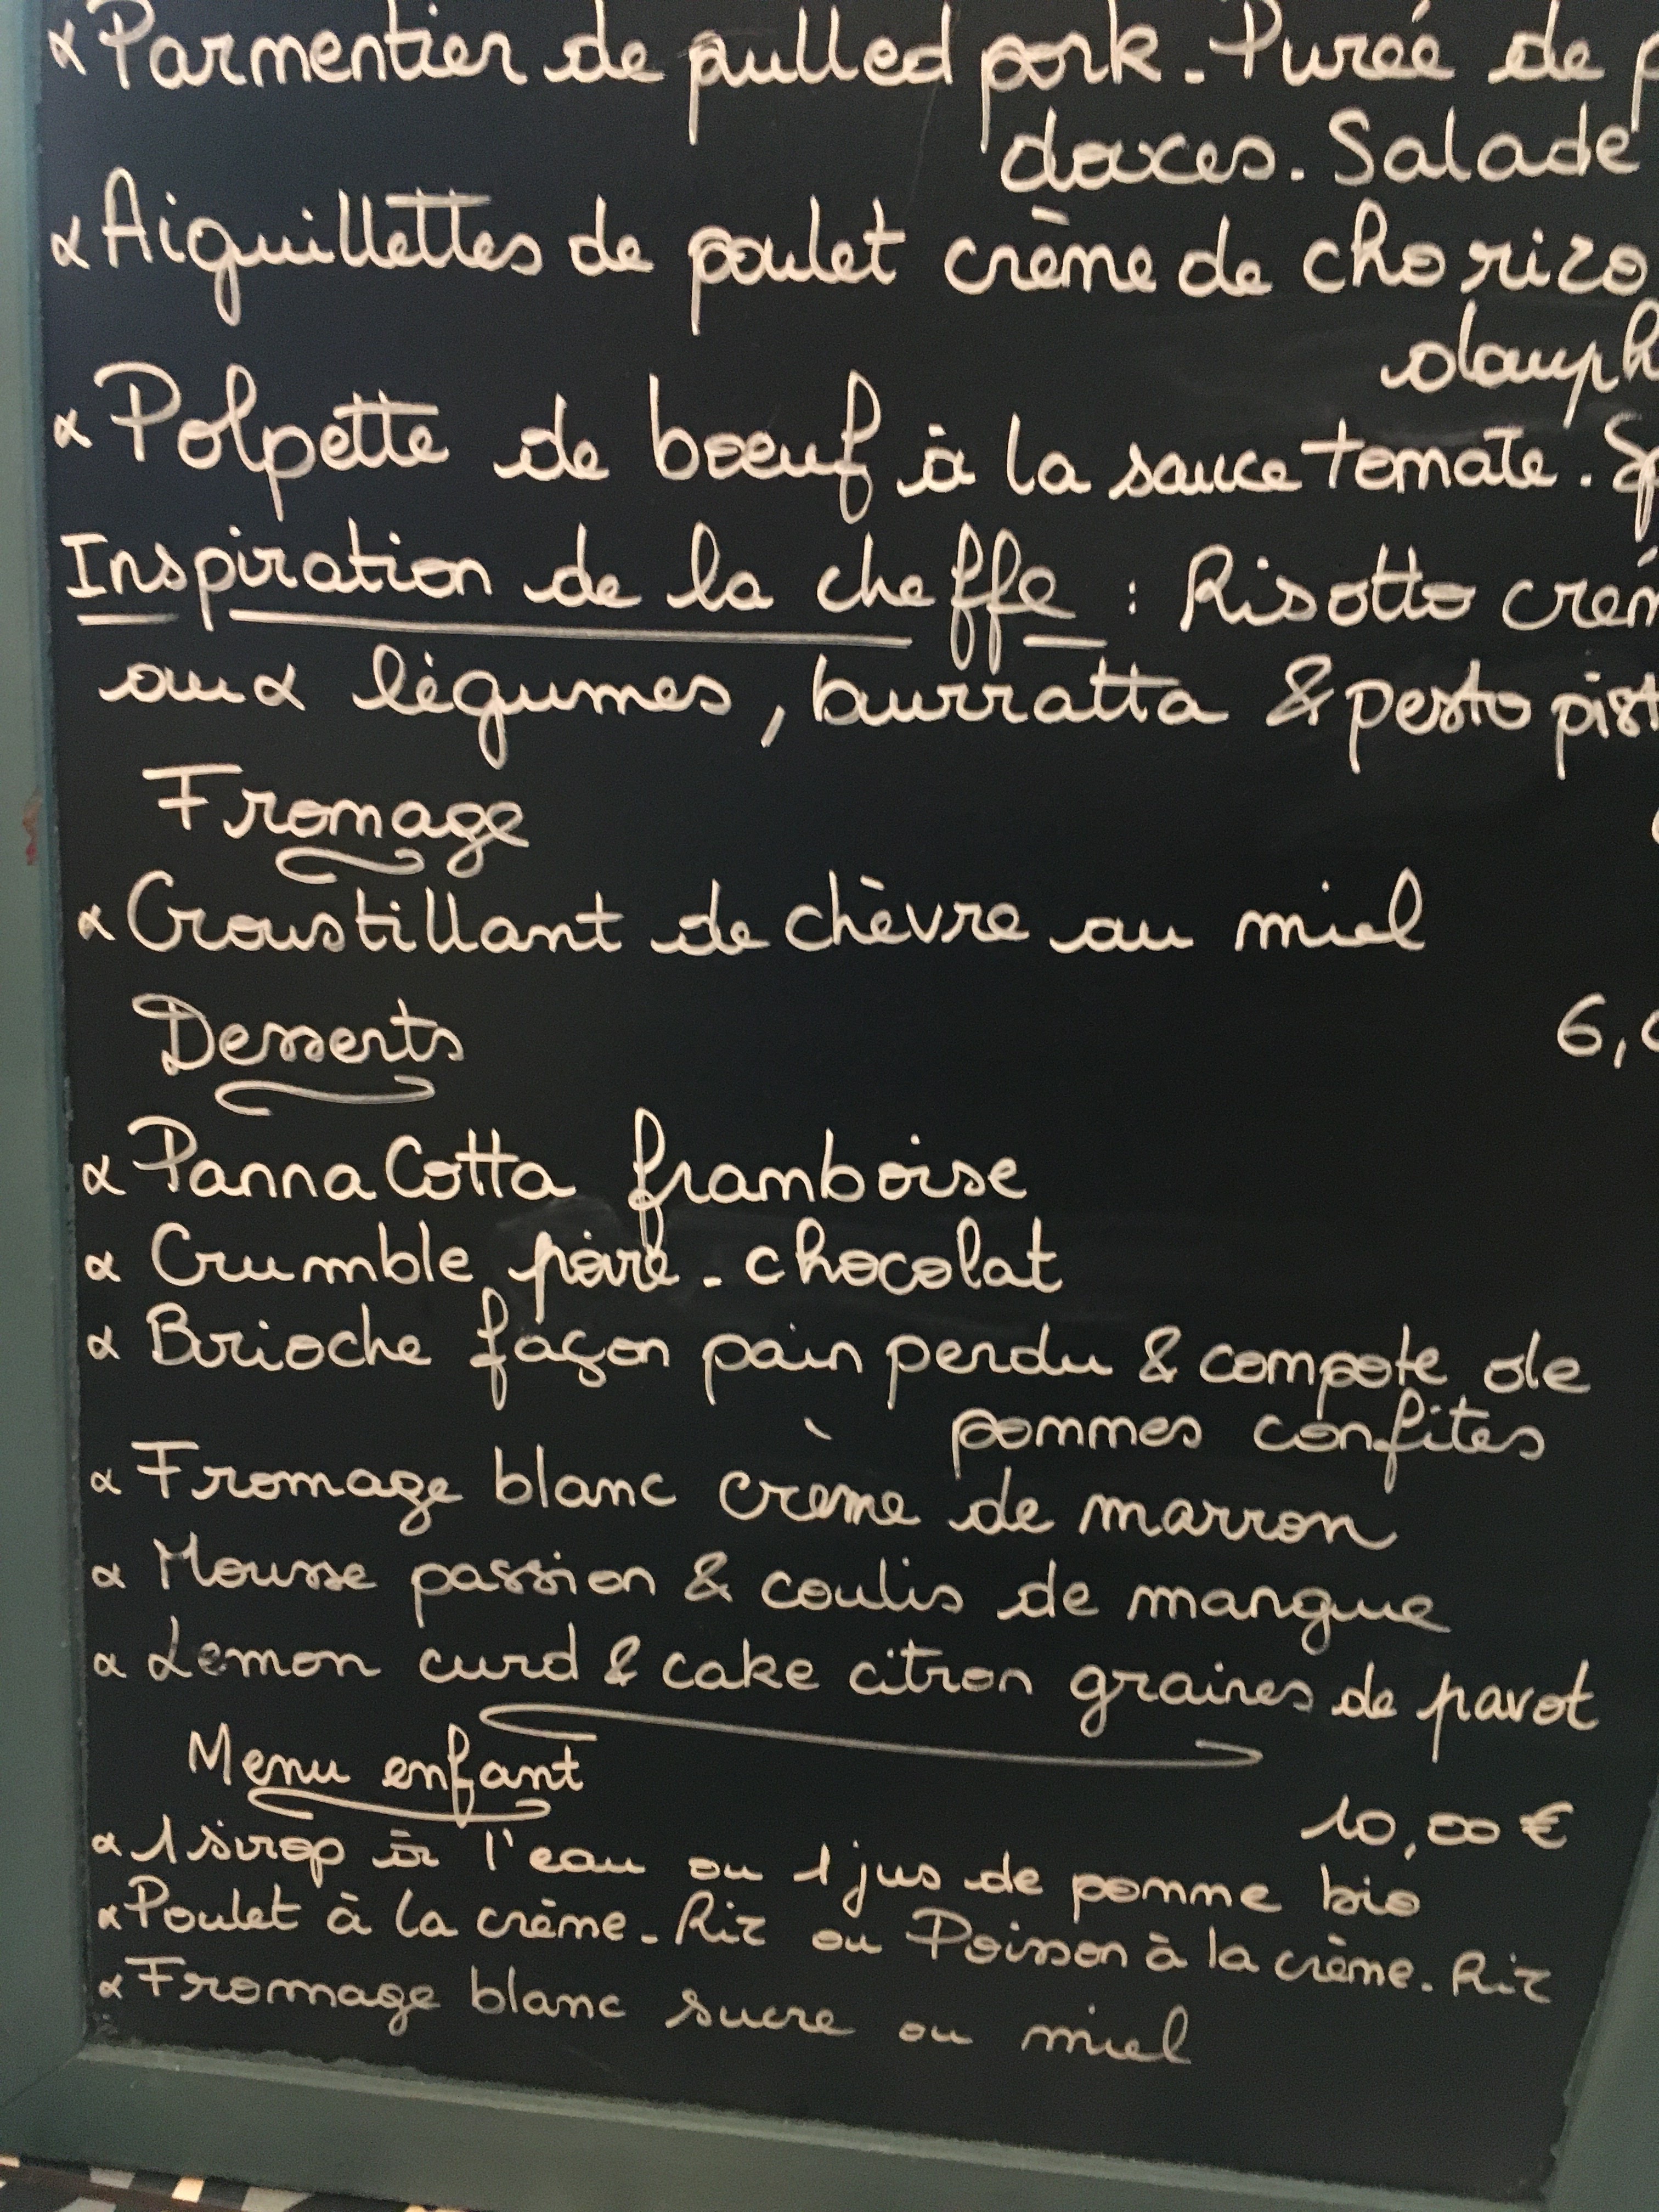 Parmentier de pulled pork - Purée de p
douces. Salade
Aiguillettes de poulet crème de chorizo
dauph
Polpette de bœuf à la sauce tomate. Sp
Inspiration de la cheffe : Risotto crém
aux légumes, burratta & pesto pist
Fromage
Croustillant de chèvre au miel
Desserts 6,0
Panna Cotta framboise
Crumble poire - chocolat
Brioche façon pain perdu & compote de
pommes confites
Fromage blanc crème de marron
Mousse passion & coulis de mangue
Lemon curd & cake citron graines de pavot
Menu enfant 10,00 €
1 sirop à l'eau ou 1 jus de pomme bio
Poulet à la crème - Riz ou Poisson à la crème - Riz
Fromage blanc sucre ou miel